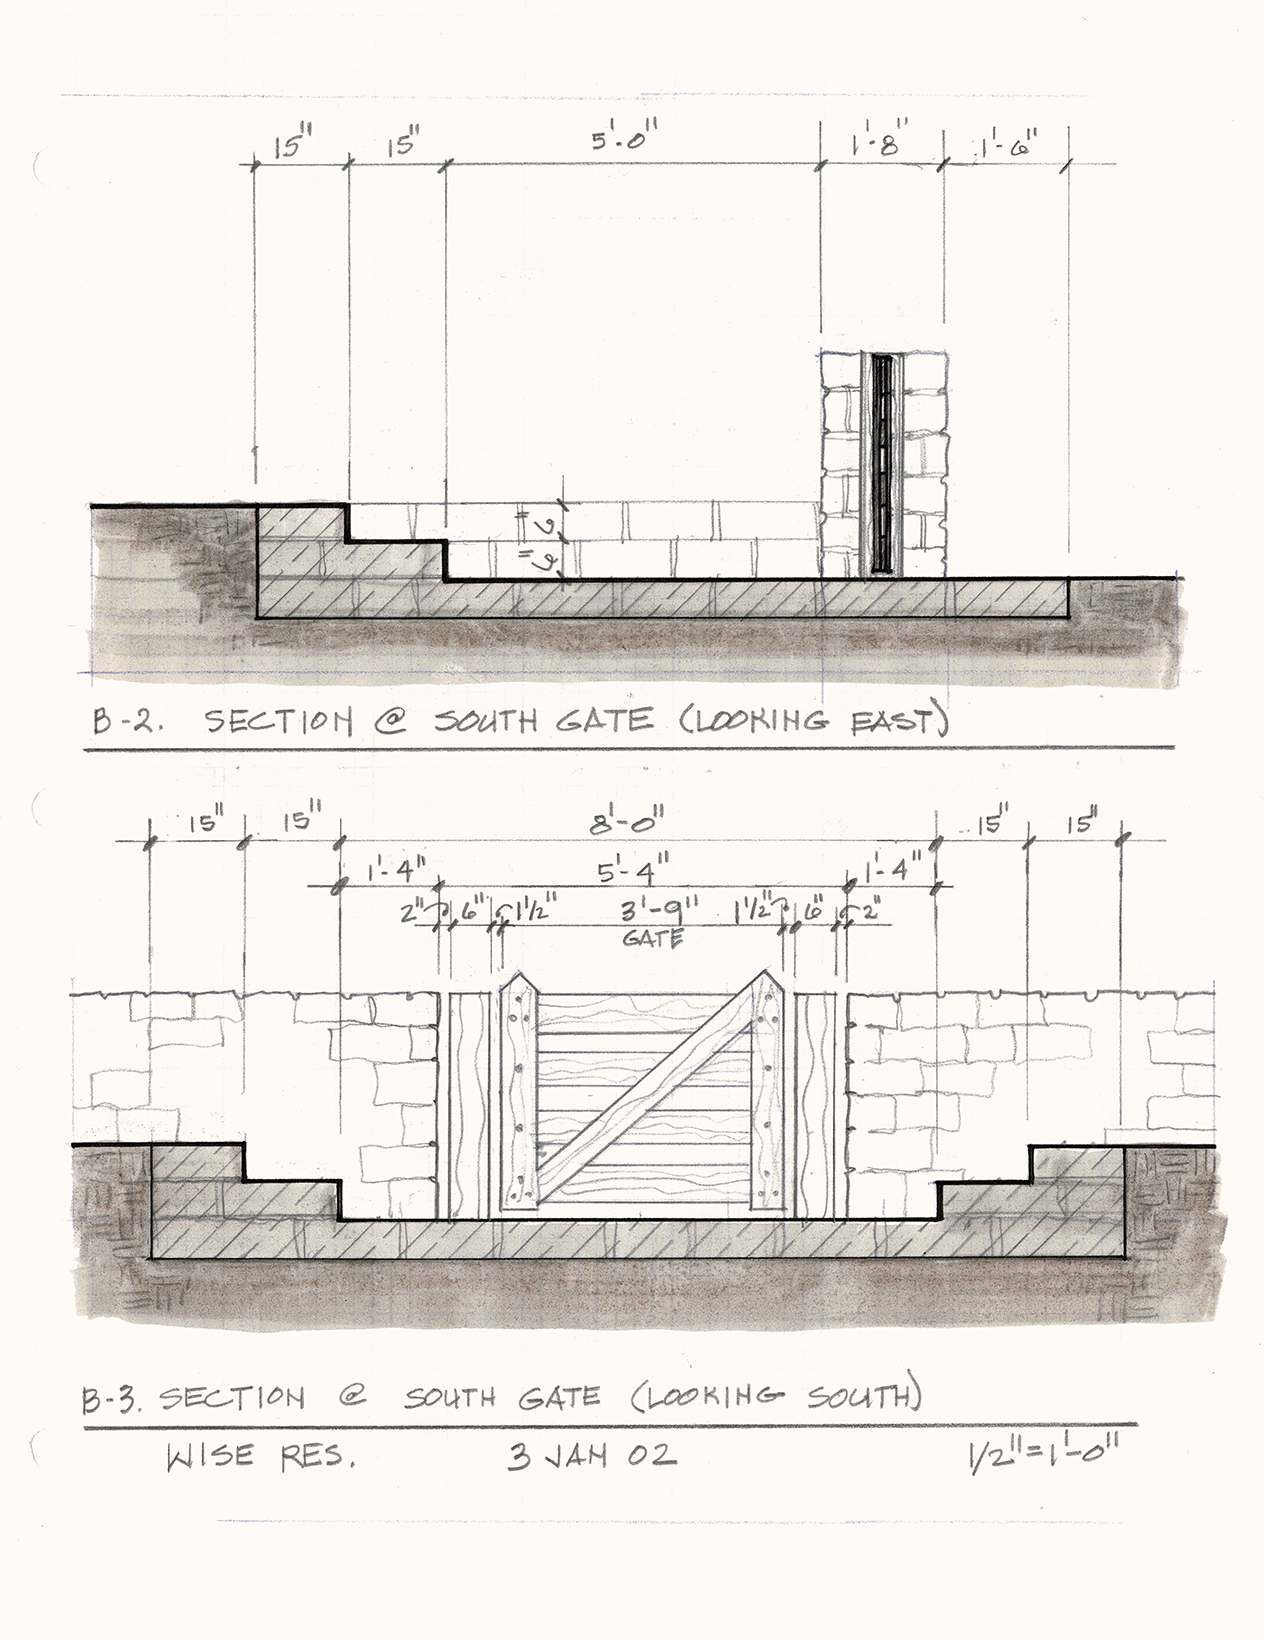 15" 15" 5'-0" 1'-8" 1'-6"
6"
6"
B-2. SECTION @ SOUTH GATE (LOOKING EAST)
15" 15" 8'-0" 15" 15"
1'-4" 5'-4" 1'-4"
2" 6" 1½" 3'-9" 1½" 6" 2"
GATE
B-3. SECTION @ SOUTH GATE (LOOKING SOUTH)
WISE RES. 3 JAN 02 1/2"=1'-0"